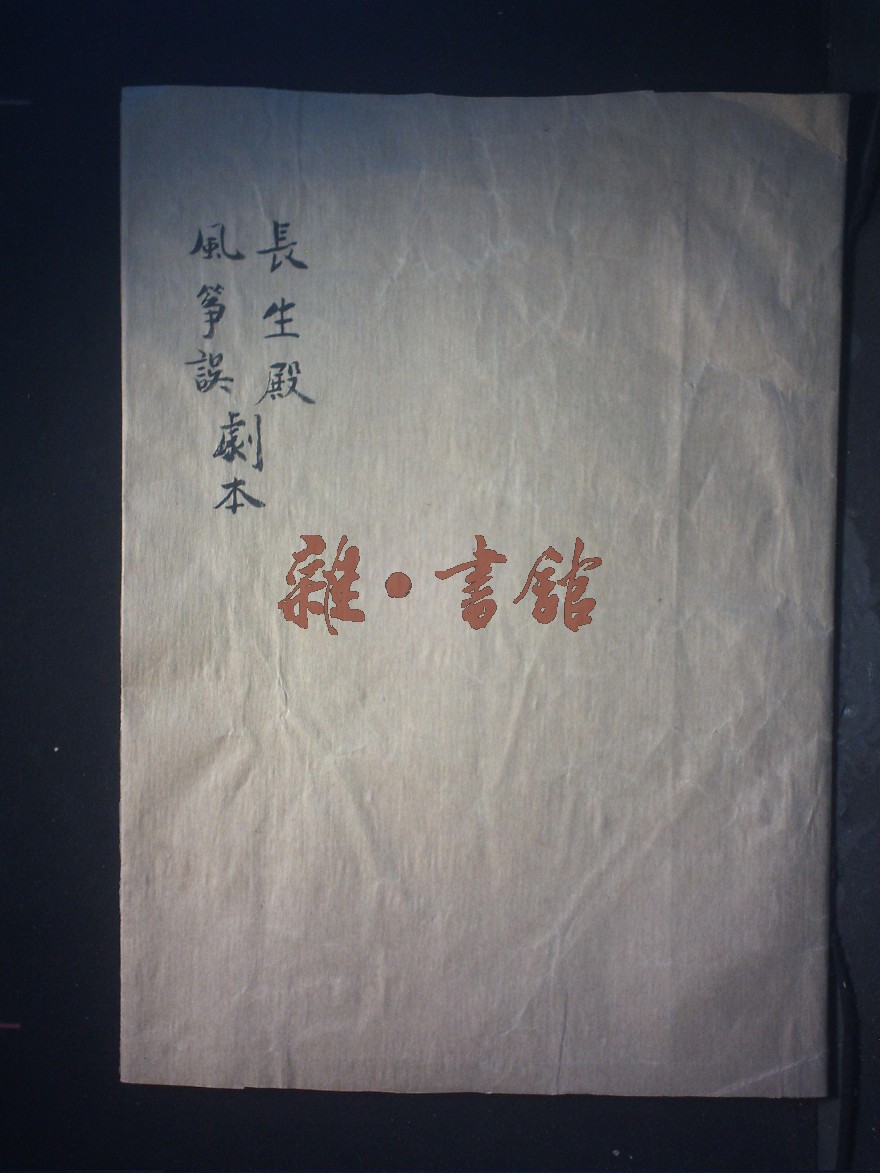 長生殿
風箏誤
劇本
雜·書館